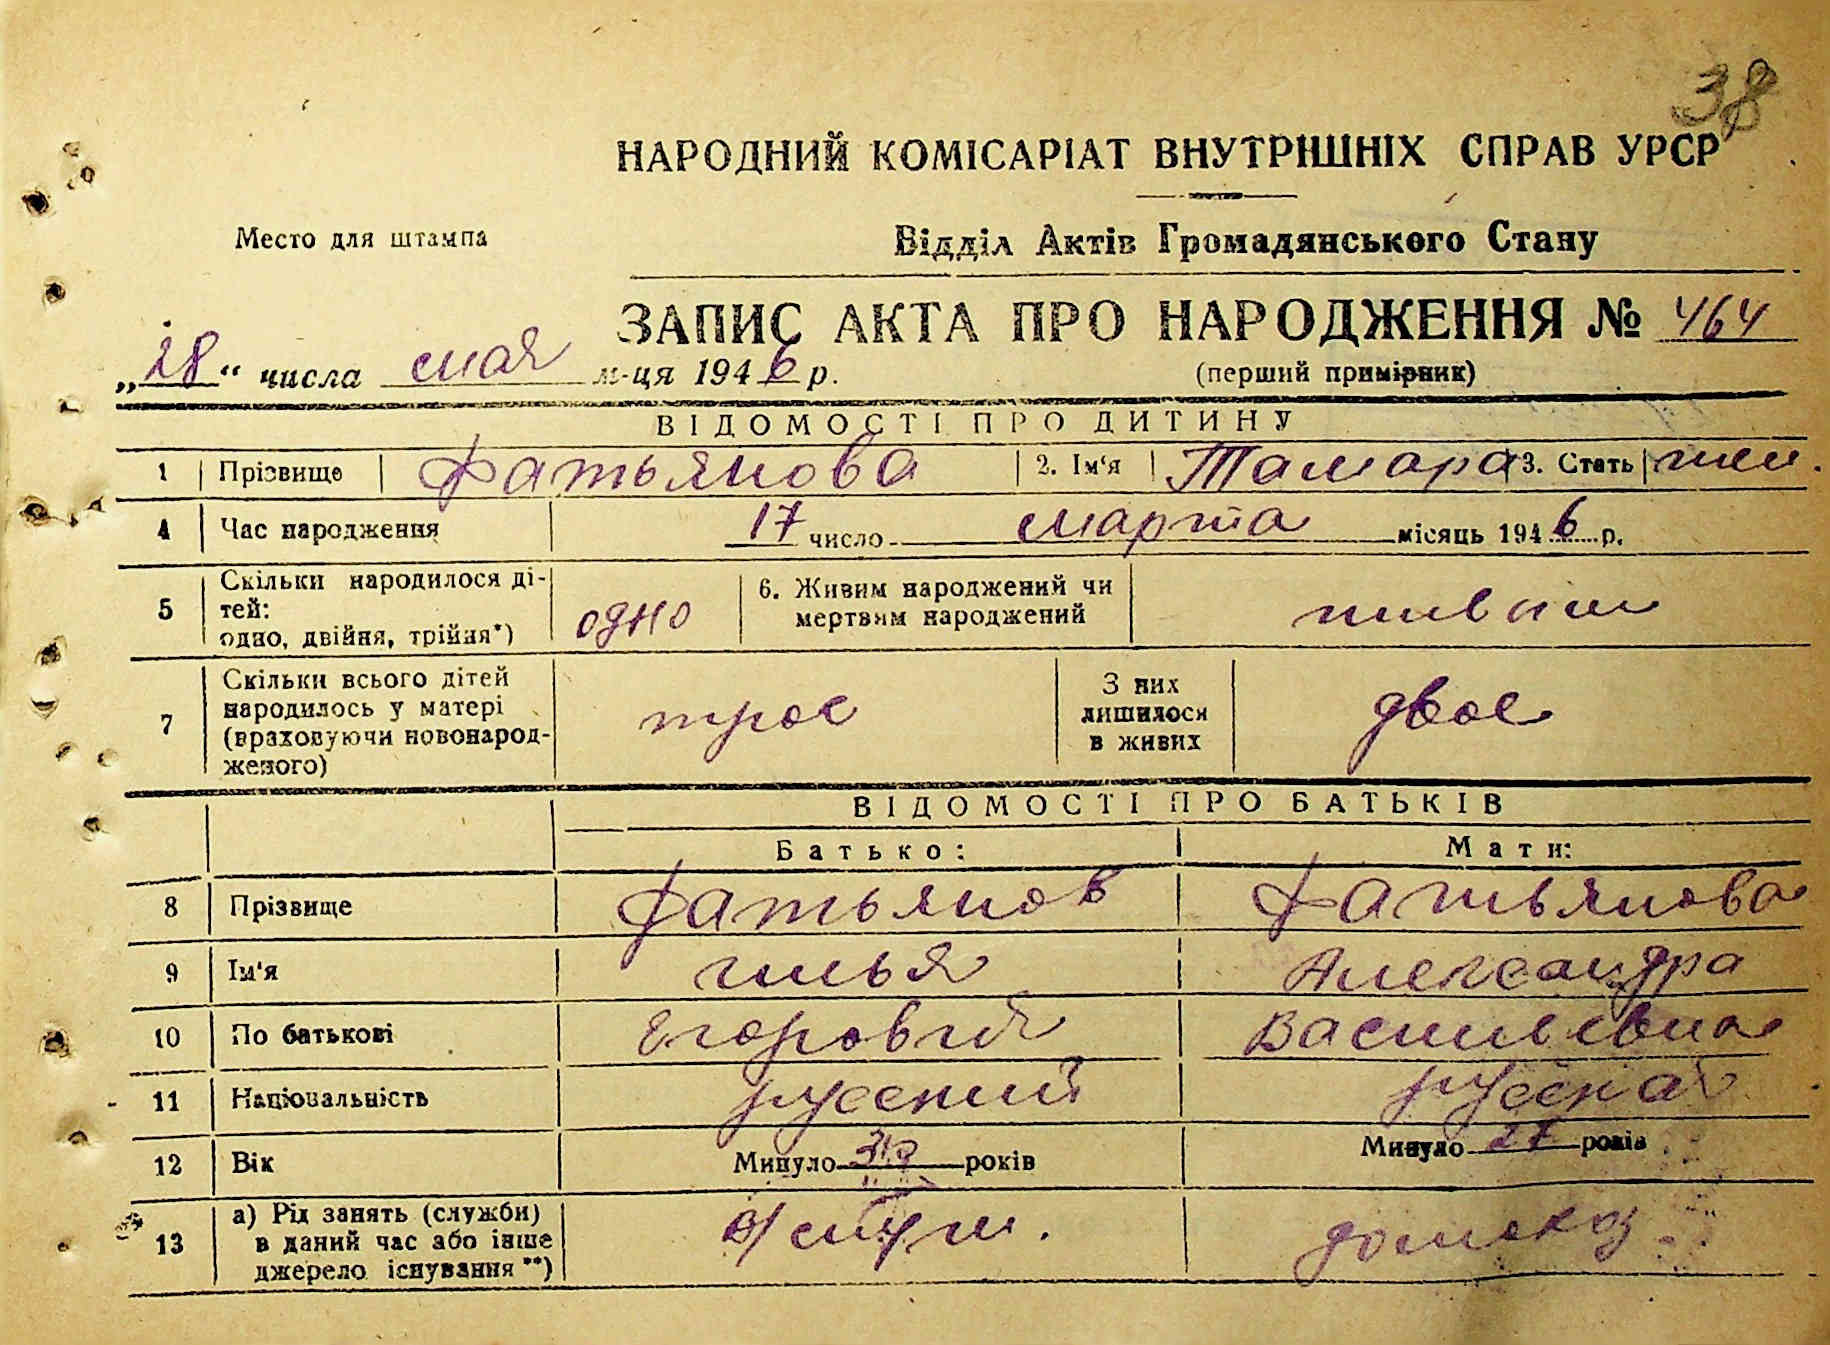 38
НАРОДНИЙ КОМІСАРІАТ ВНУТРІШНІХ СПРАВ УРСР
Место для штампа
Відділ Актів Громадянського Стану
ЗАПИС АКТА ПРО НАРОДЖЕННЯ № 464
„28“ числа мая м-ця 1946 р.
(перший примірник)
ВІДОМОСТІ ПРО ДИТИНУ
1 Прізвище Фатьянова 2. Ім‘я Тамара 3. Стать жен.
4 Час народження 17 число марта місяць 1946 р.
5 Скільки народилося ді-
тей:
одно, двійня, трійня*) одно
6. Живим народжений чи
мертвим народжений живым
7 Скільки всього дітей
народилось у матері
(враховуючи новонарод-
женого) трое
З них
лишилося
в живих двое
ВІДОМОСТІ ПРО БАТЬКІВ
Батько: Мати:
8 Прізвище Фатьянов Фатьянова
9 Ім‘я Илья Александра
10 По батькові Егоровий Васильевна
11 Національність русский русская
12 Вік Минуло років Минуло 27 років
13 а) Рід занять (служби)
в даний час або інше
джерело існування**) домохоз.